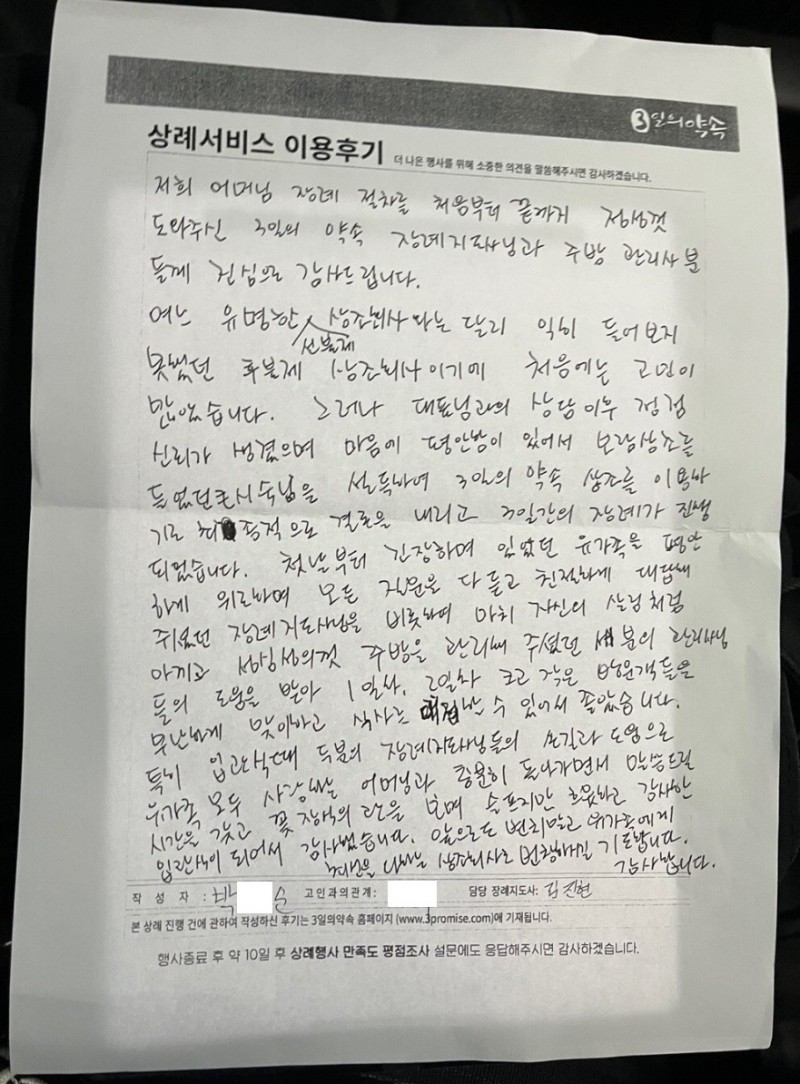 3일의약속
상례서비스 이용후기 더 나은 행사를 위해 소중한 의견을 말씀해주시면 감사하겠습니다.
저희 어머님 장례 절차를 처음부터 끝까지 정성껏
도와주신 3일의 약속 장례지도사님과 주방 관리사 분
들께 진심으로 감사드립니다.
여느 유명한 상조회사와는 달리 익히 들어보지
선불제
못했던 후불제 상조회사이기에 처음에는 고민이
많았습니다. 그러나 대표님과의 상담이후 점점
신뢰가 생겼으며 마음에 평안함이 있어서 보람상조를
들었던 큰시숙님을 설득하여 3일의 약속 상조를 이용하
기로 최종적으로 결론을 내리고 3일간의 장례가 진행
되었습니다. 첫날부터 긴장하며 있었던 유가족을 평안
하게 위로하며 모든 질문을 다 듣고 친절하게 대답해
주셨던 장례지도사님을 비롯하여 마치 자신의 살림처럼
아끼고 성심성의껏 주방을 관리해 주셨던 세분의 관리사님
들의 도움을 받아 1일차, 2일차 크고 작은 방문객들을
무난하게 맞이하고 식사를 대접할 수 있어서 좋았습니다.
특히 입관식때 두분의 장례지도사님들의 손길과 도움으로
유가족 모두 사랑하는 어머님과 충분히 돌아가면서 말씀드릴
시간을 갖고 꽃 장식의 관을 보며 슬프지만 흐뭇하고 감사한
입관식이 되어서 감사했습니다. 앞으로도 변치말고 유가족에게
최선을 다하는 상조회사로 번창하시길 기도합니다.
감사합니다.
작 성 자 : 박 순 고인과의관계: 담당 장례지도사: 김진현
본 상례 진행 건에 관하여 작성하신 후기는 3일의약속 홈페이지 (www.3promise.com)에 기재됩니다.
행사종료 후 약 10일 후 상례행사 만족도 평점조사 설문에도 응답해주시면 감사하겠습니다.